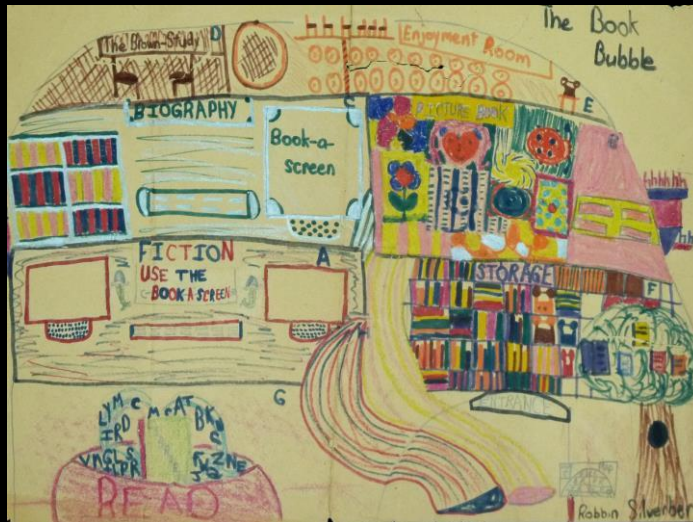 The Book
Bubble
The Brown-Study
D
Enjoyment Room
BIOGRAPHY
C
PICTURE BOOK
E
Book-a-
screen
FICTION
USE THE
BOOK-A-SCREEN
A
STORAGE
F
ENTRANCE
G
READ
Robbin Silverber